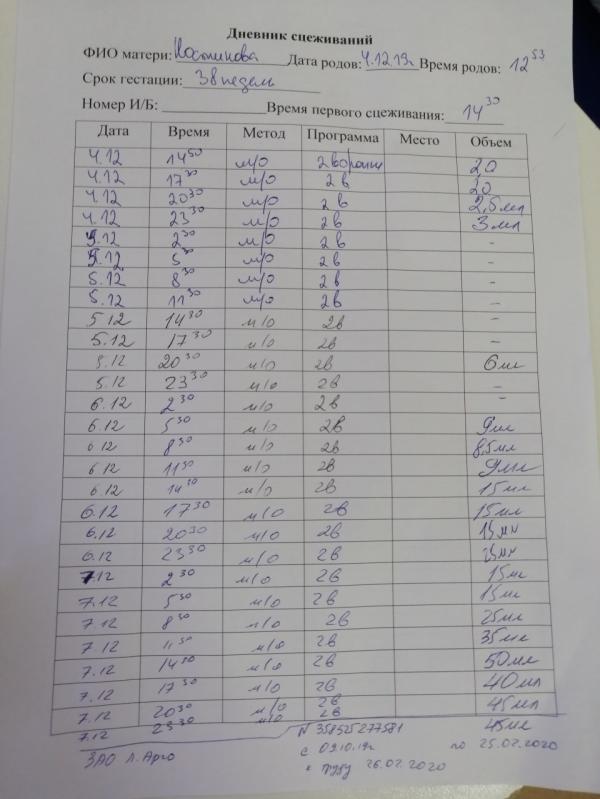 Дневник сцеживаний
ФИО матери: Дата родов: 4.12.19г Время родов: 12 53
Срок гестации: 38 недель
Номер И/Б: Время первого сцеживания: 14 30
Дата Время Метод Программа Место Объем
4.12 14 50 м/о 2 воронки 2,0
4.12 17 30 м/о 2в 2,0
4.12 20 30 м/о 2в 2,5мл
4.12 23 30 м/о 2в 3мл
5.12 2 30 м/о 2в -
5.12 5 30 м/о 2в -
5.12 8 30 м/о 2в -
5.12 11 30 м/о 2в -
5.12 14 30 м/о 2в -
5.12 17 30 м/о 2в -
5.12 20 30 м/о 2в 6мл
5.12 23 30 м/о 2в -
6.12 2 30 м/о 2в -
6.12 5 30 м/о 2в 9мл
6.12 8 30 м/о 2в 8,5мл
6.12 11 30 м/о 2в 9мл
6.12 14 30 м/о 2в 15мл
6.12 17 30 м/о 2в 15мл
6.12 20 30 м/о 2в
6.12 23 30 м/о 2в
7.12 2 30 м/о 2в 15мл
7.12 5 30 м/о 2в 15мл
7.12 8 30 м/о 2в 25мл
7.12 11 30 м/о 2в 35мл
7.12 14 30 м/о 2в 50мл
7.12 17 30 м/о 2в 40мл
7.12 20 30 м/о 2в 45мл
7.12 23 30 м/о 2в 45мл
N 358525277581
ЗАО с 09.10.19г по 25.02.2020
к труду 26.02.2020